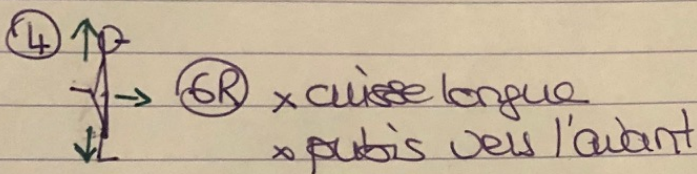 ④ 6R × cuisse longue
× pubis vers l'avant